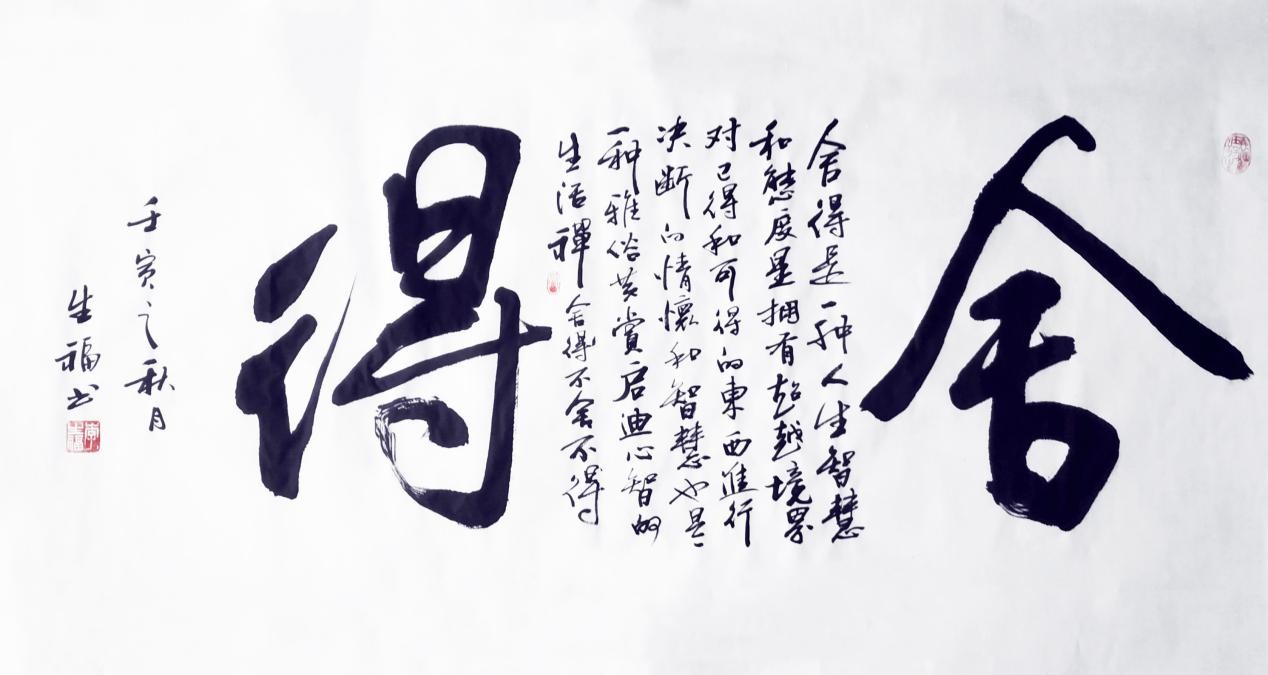 舍得
舍得是一种人生智慧
和態度是拥有超越境界
对已得和可得的東西進行
决断的情懷和智慧也是
一种雅俗共赏启迪心智的
生活禪
舍得不舍不得
壬寅之秋月
生福书